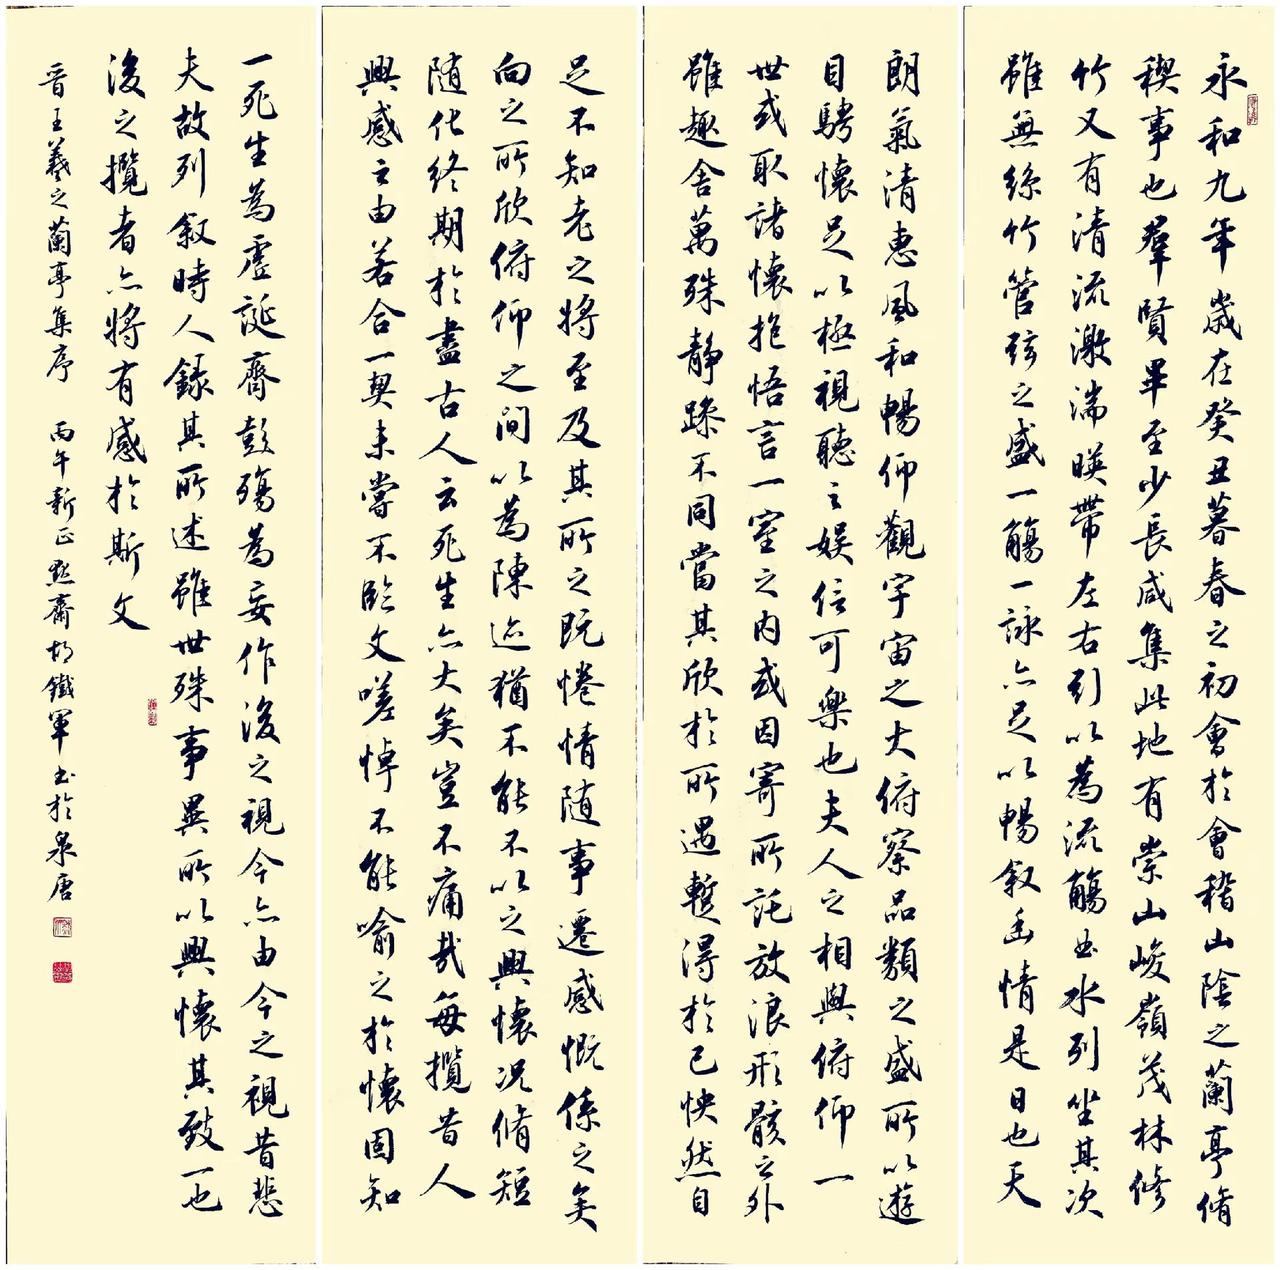 永和九年歲在癸丑暮春之初會於會稽山陰之蘭亭脩
稧事也羣賢畢至少長咸集此地有崇山峻嶺茂林修
竹又有清流激湍暎帶左右引以為流觴曲水列坐其次
雖無絲竹管弦之盛一觴一詠亦足以暢叙幽情是日也天
朗氣清惠風和暢仰觀宇宙之大俯察品類之盛所以遊
目騁懷足以極視聽之娛信可樂也夫人之相與俯仰一
世或取諸懷抱悟言一室之內或因寄所託放浪形骸之外
雖趣舍萬殊靜躁不同當其欣於所遇蹔得於己怏然自
足不知老之將至及其所之既惓情随事遷感慨係之矣
向之所欣俯仰之間以為陳迹猶不能不以之興懷況脩短
随化終期於盡古人云死生亦大矣豈不痛哉每攬昔人
興感之由若合一契未嘗不臨文嗟悼不能喻之於懷固知
一死生為虛誕齊彭殤為妄作後之視今亦由今之視昔悲
夫故列叙時人錄其所述雖世殊事異所以興懷其致一也
後之攬者亦將有感於斯文
晋王羲之蘭亭集序 丙午新正默齋胡鐵軍書於泉唐